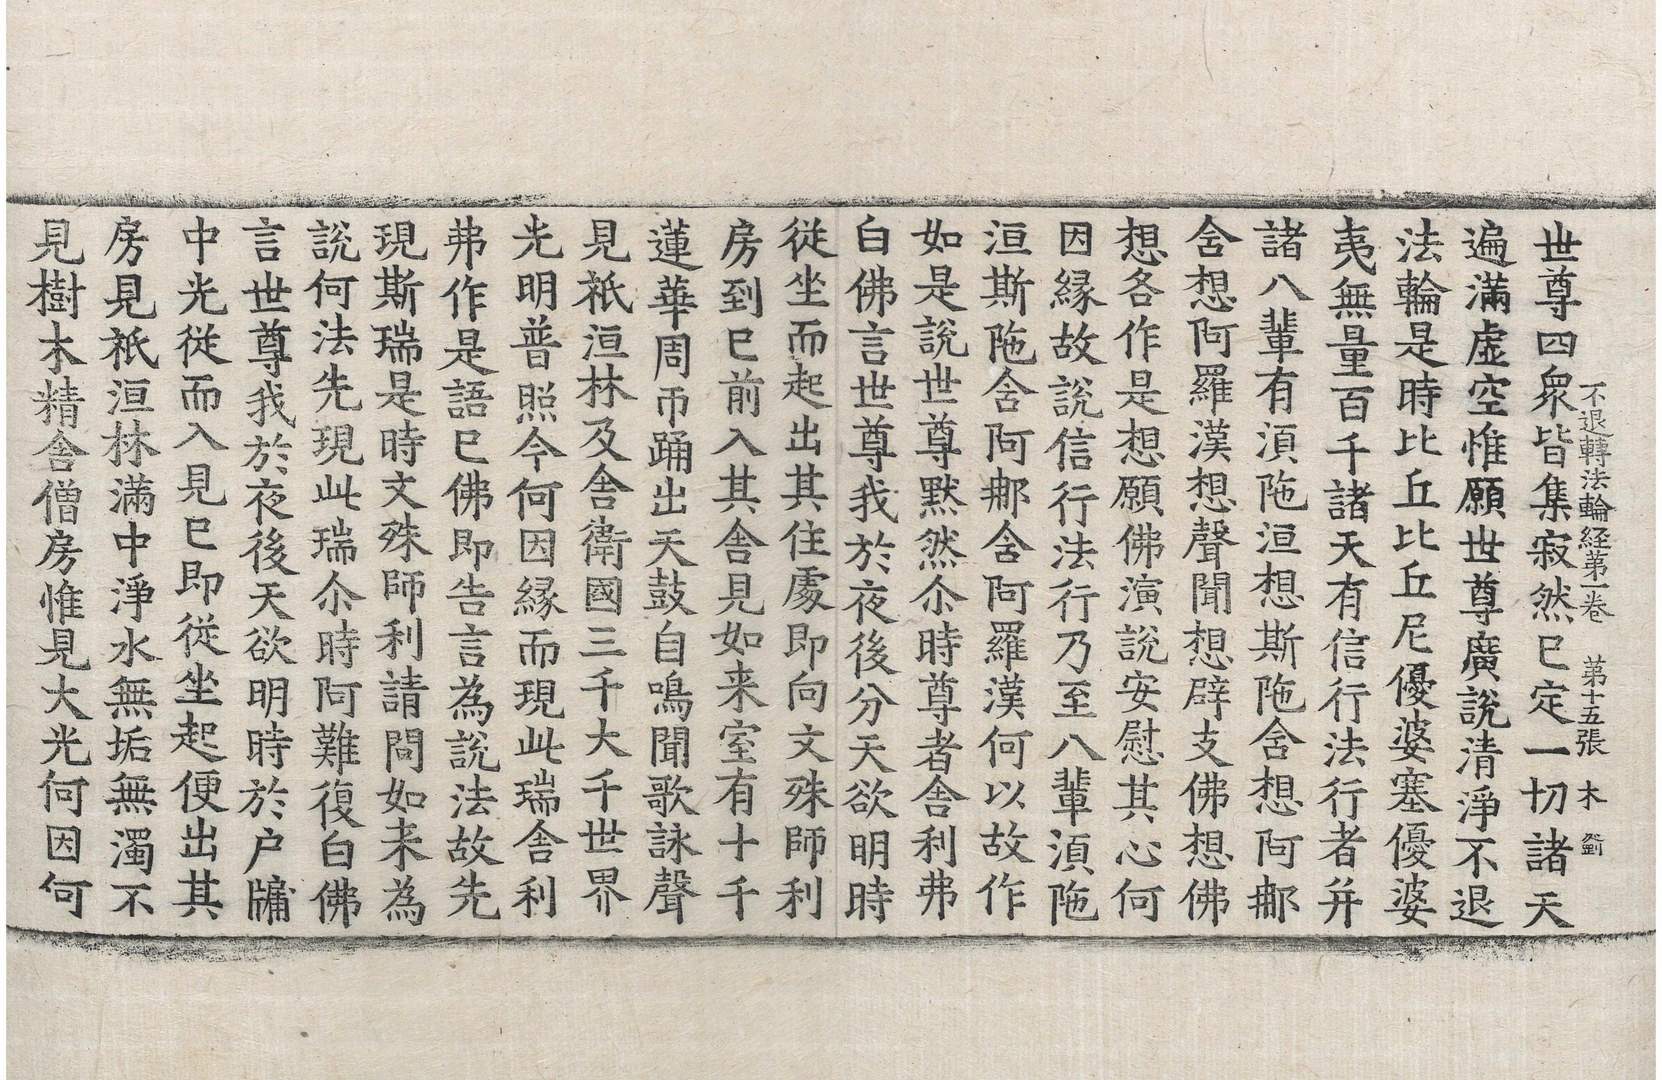 不退轉法輪経第一卷 第十五張 木 劉
世尊四衆皆集寂然已定一切諸天
遍滿虛空惟願世尊廣說清淨不退
法輪是時比丘比丘尼優婆塞優婆
夷無量百千諸天有信行法行者并
諸八輩有湏陁洹想斯陁含想阿那
含想阿羅漢想聲聞想辟支佛想佛
想各作是想願佛演說安慰其心何
因緣故說信行法行乃至八輩湏陁
洹斯陁含阿那含阿羅漢何以故作
如是說世尊默然尒時尊者舍利弗
白佛言世尊我於夜後分天欲明時
從坐而起出其住處即向文殊師利
房到已前入其舍見如来室有十千
蓮華周帀踊出天鼓自鳴聞歌詠聲
見祇洹林及舍衛國三千大千世界
光明普照今何因緣而現此瑞舍利
弗作是語已佛即告言為說法故先
現斯瑞是時文殊師利請問如来為
說何法先現此瑞尒時阿難復白佛
言世尊我於夜後天欲明時於户牖
中光從而入見已即從坐起便出其
房見祇洹林滿中淨水無垢無濁不
見樹木精舍僧房惟見大光何因何